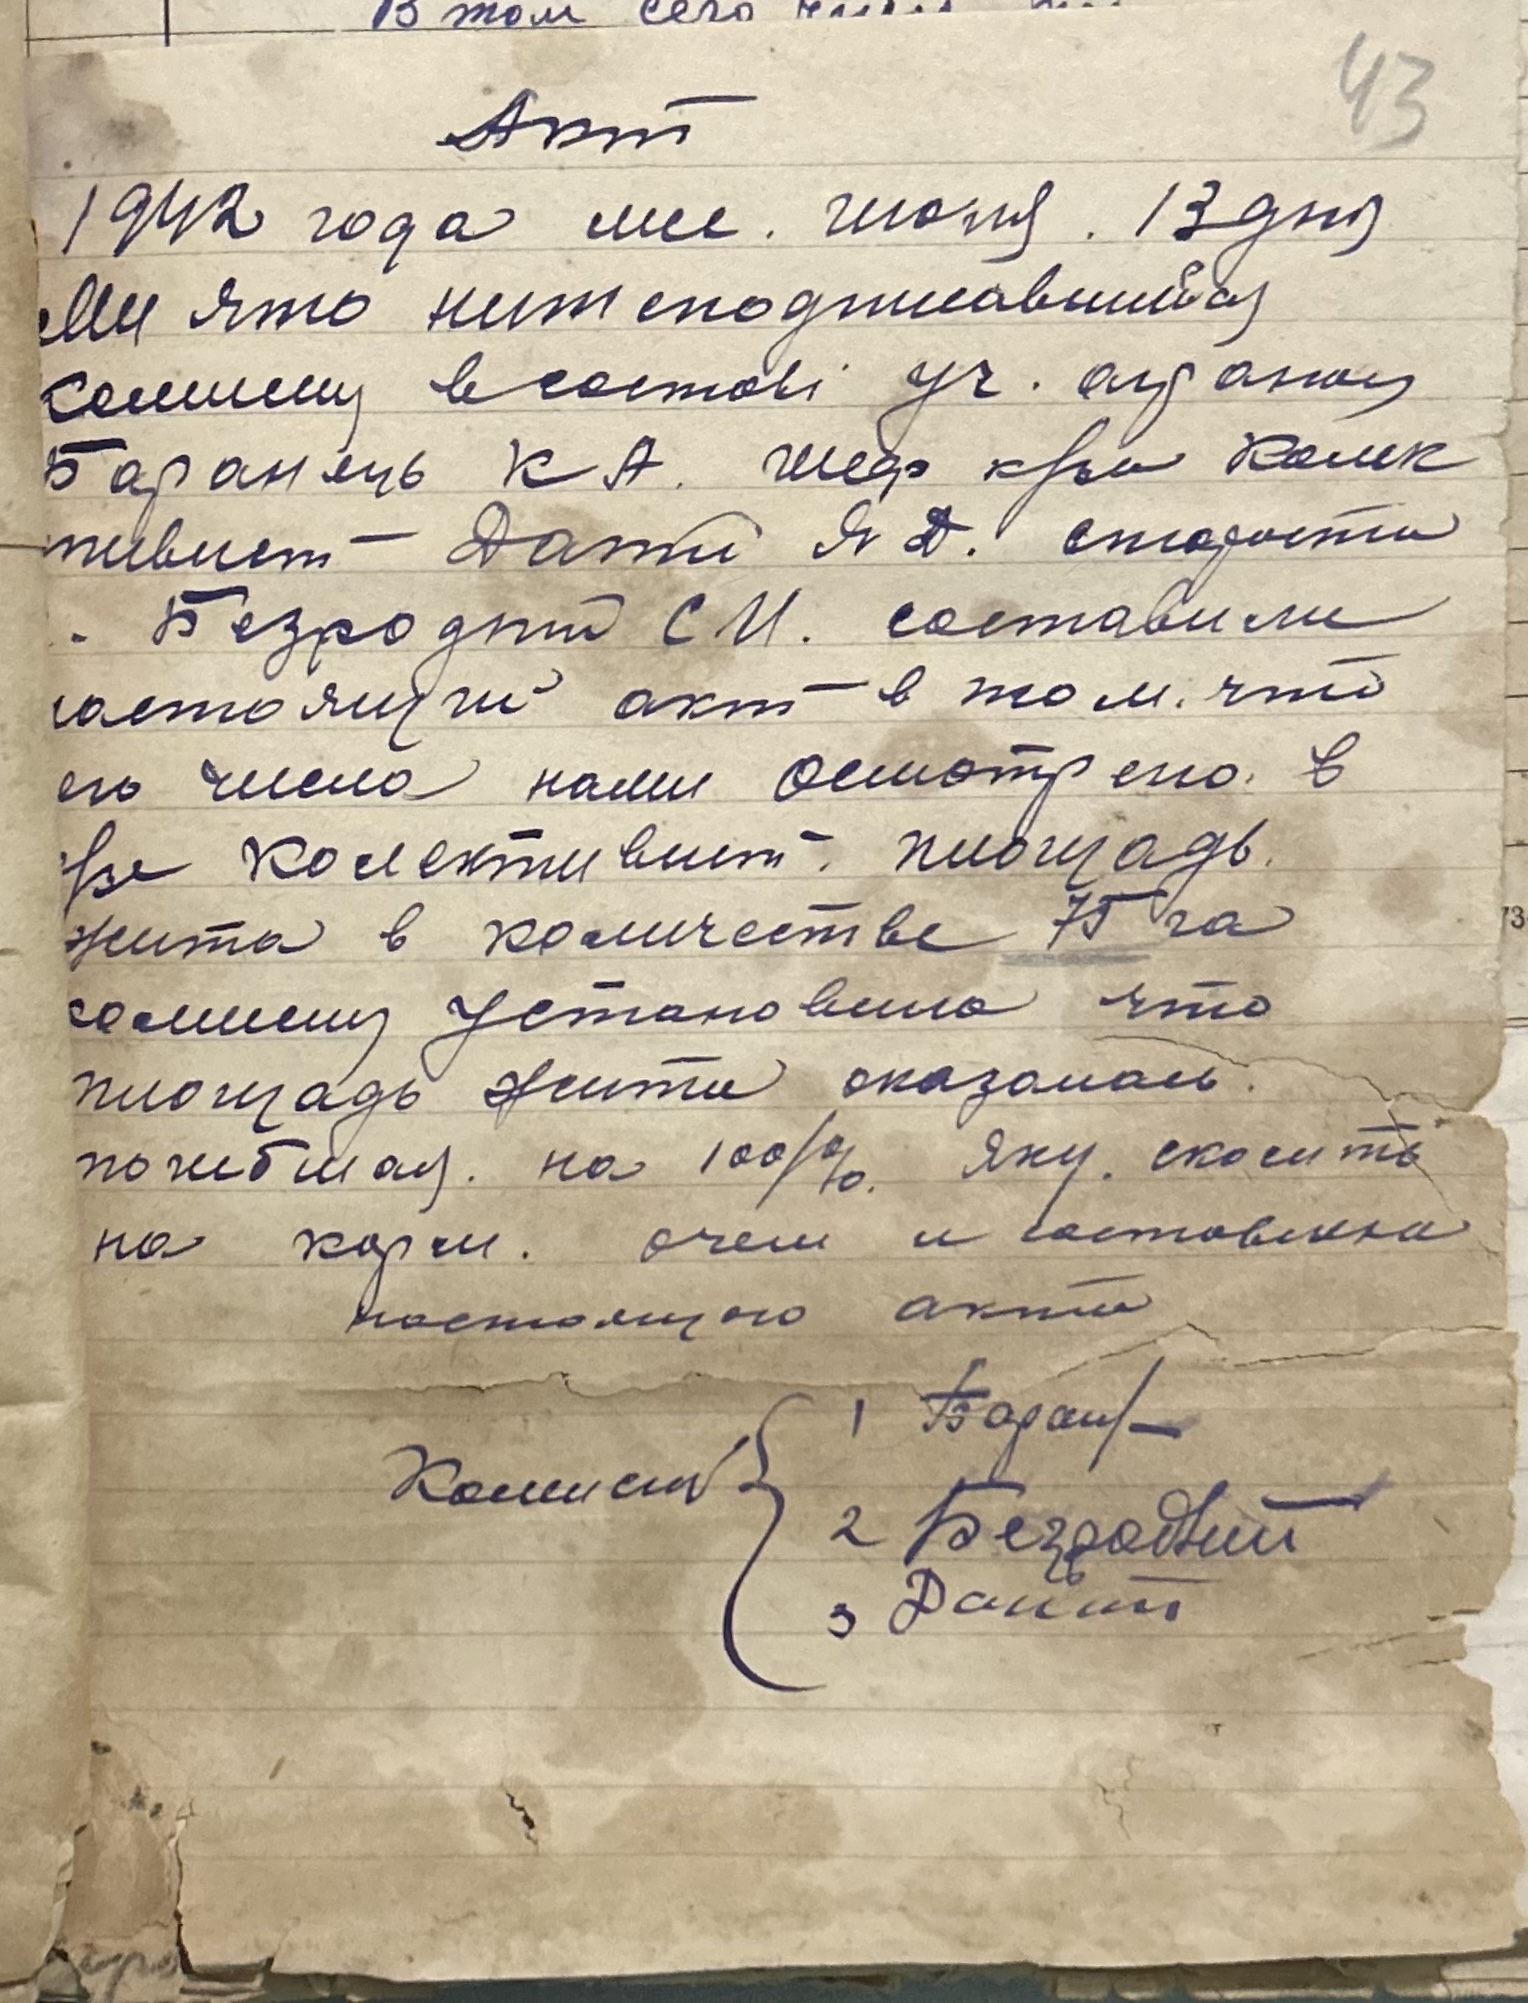 В том сего числа
43
Акт
1942 года мес. июня. 13 дня
Ми что нижеподписавшийся
комисия в составі уч. агроном
Баранець К А. шеф к-ви Колек
тивист Дапти Я Д. старости
. Безродний С И. составили
настоящий акт в том. что
его числа нами осмотрено. в
к-ве Колективист. площадь.
жита в количестве 75 га
комисия установила что
площадь жита оказалась.
погибшая. на 100%. Яку. скосить
на корм. очем и составлена
настоящого акта
Комисия
1 Баран
2 Безродний
3